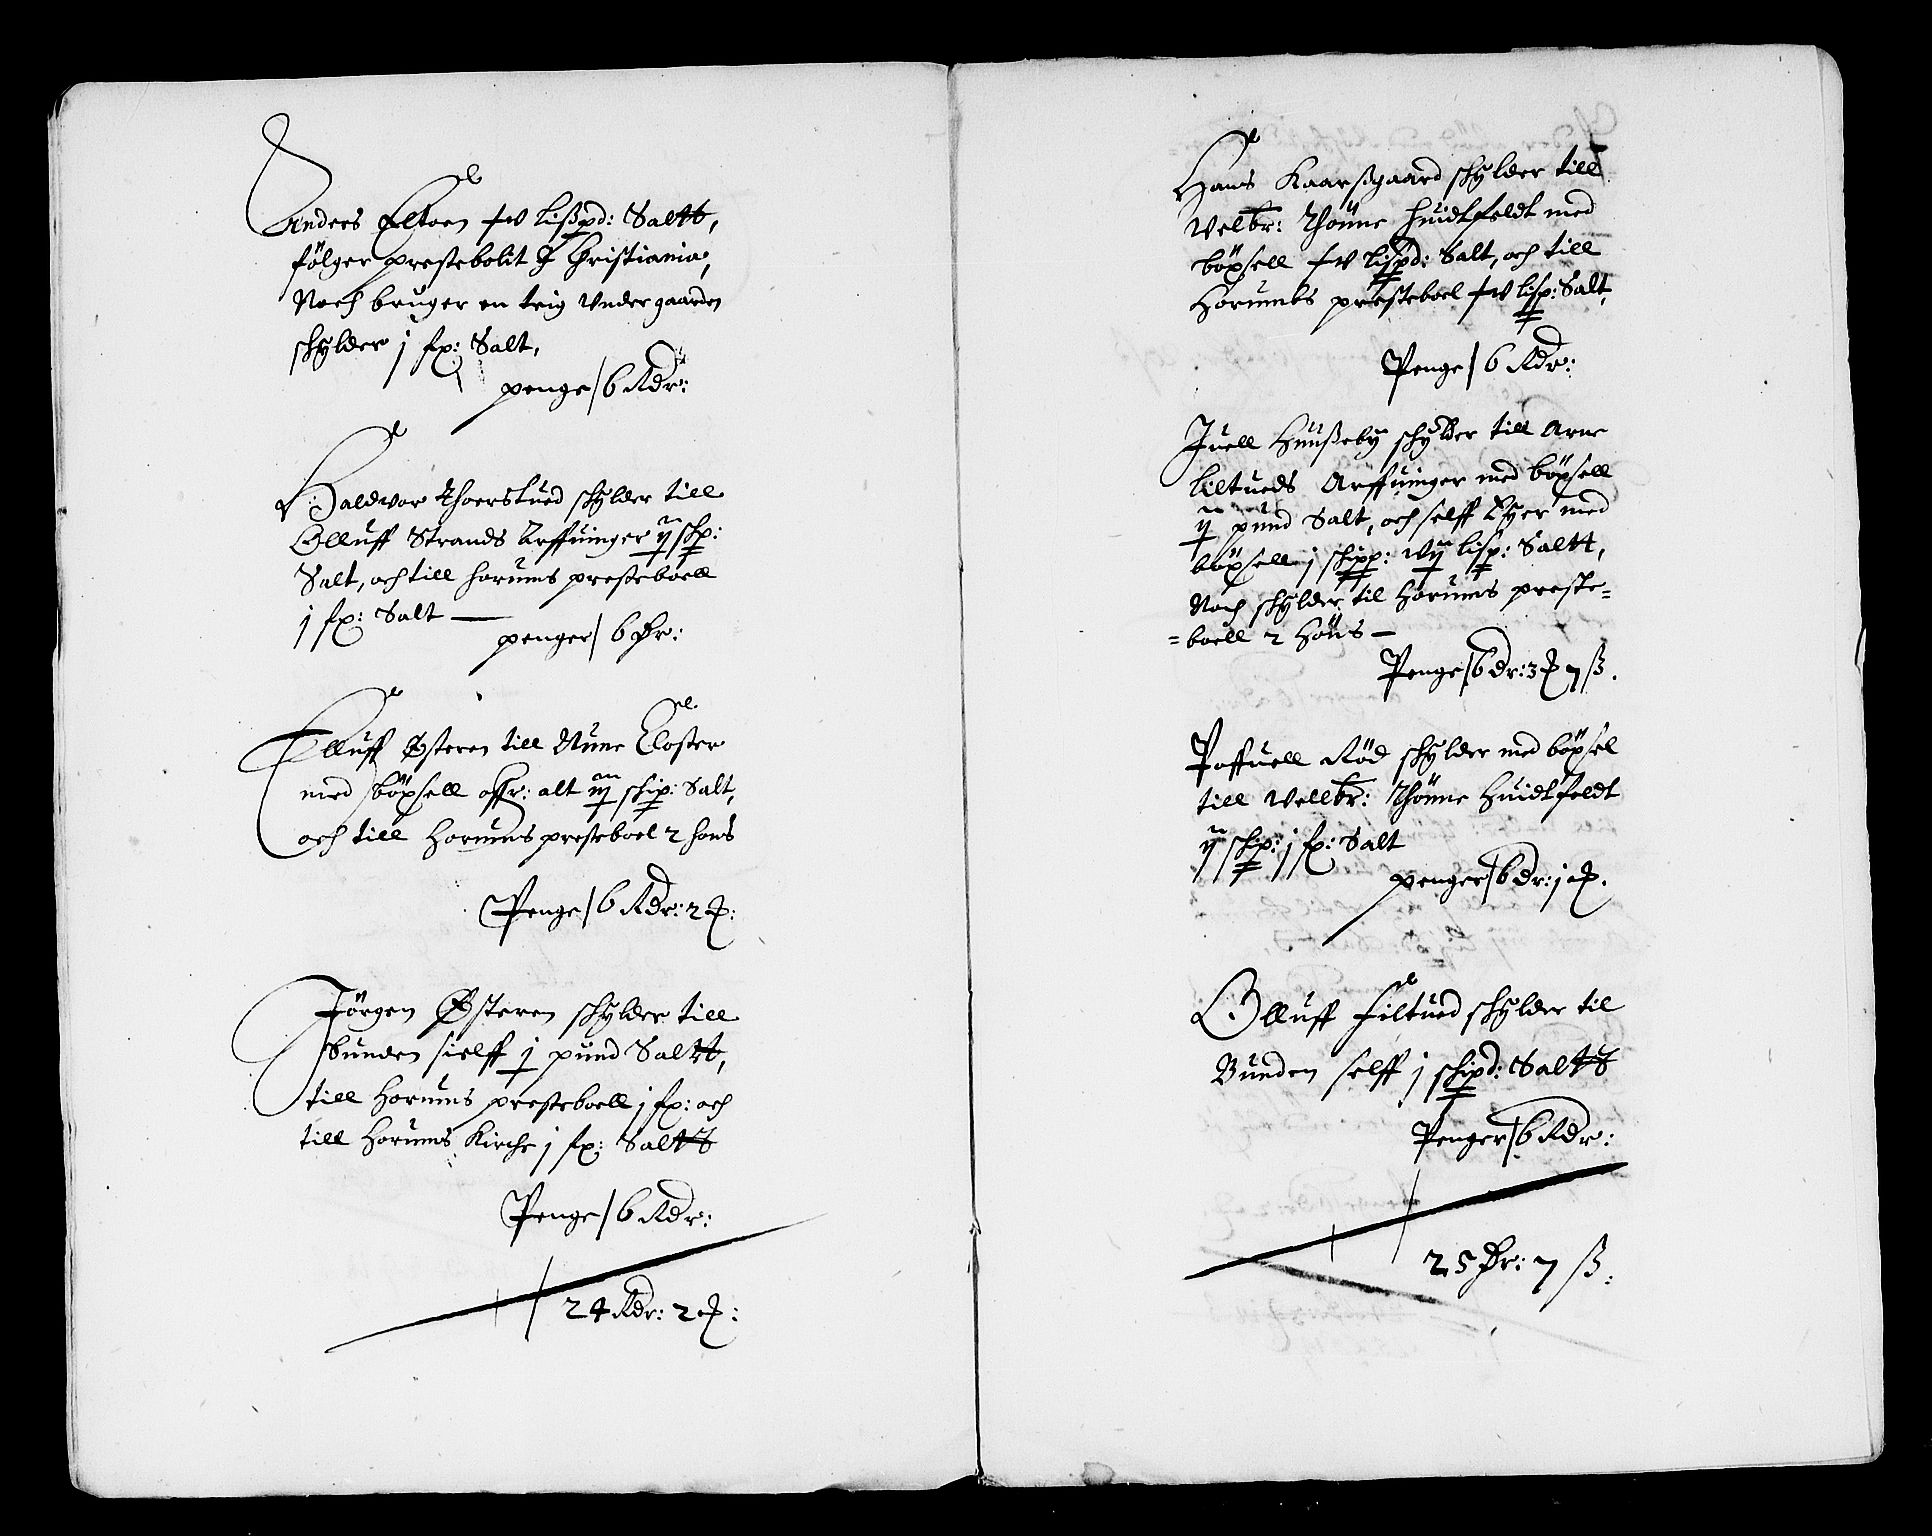 Anders Eltoen xv lißpd: Saltt,
fölger prestebolit J Christiania,
Noch bruger en teig under gaarden
schylder j fx: Salt,
penge / 6 Rdr:
Haldvor Thoerstued schylder till
Olluff Strands Arffuinger ij skp:
Salt, och till Horums presteboell
j fx: Salt —
penger / 6 Dr:
Olluff Østeren till Nune Closter
med böxsell offr: alt iij schip: Salt,
och till Horums presteboel 2 hons
Penge / 6 Rdr: 2 ꝶ:
Jörgen Østeren schylder till
Bunden sielff j pund Saltt,
till Horums presteboell j fx: och
till Horums Kirche j fx: Saltt
Penge / 6 Rdr:
24 Rdr: 2 ꝶ:
Hans Kaarßgaard schylder till
Velbr: Thönne Huidtfeldt med
böxsell xv lispd: Salt, och till
Horumbs presteboel xv lisp: Salt,
Penge / 6 Rdr:
Juell Hunßeby schylder till Arne
liltueds Arffuinger med böxsell
ij pund Salt, och selff Eyer med
böxsell j schipp: vij lisp: Saltt,
Noch schylder til Horums preste=
=boell 2 Höns —
Penge / 6 dr: 3 ꝶ 7 ß.
Poffuell Röd schylder med böxsel
till Vellbr: Thönne Huidtfeldt
ij schip: j fx: Salt
penger / 6 Dr: j ꝶ.
Olluff Filtued schylder til
Bunden selff j schipd: Saltt
Penger / 6 Rdr:
25 Dr: 7 ß: